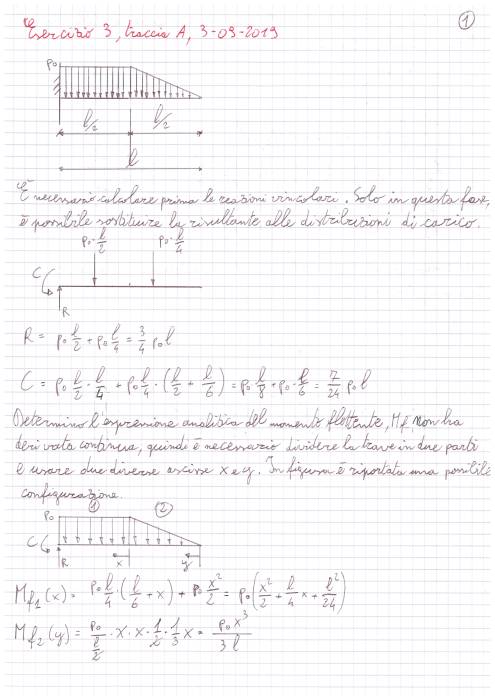 1
Esercizio 3, traccia A, 3-09-2019
p₀
l/2 l/2
l
È necessario calcolare prima le reazioni vincolari. Solo in questa fase,
è possibile sostituire la risultante alle distribuzioni di carico.
p₀·l/2 p₀·l/4
C
R
R = p₀ l/2 + p₀ l/4 = 3/4 p₀ l
C = p₀ l/2 · l/4 + p₀ l/4 · (l/2 + l/6) = p₀ l/8 + p₀ · l/6 = 7/24 p₀ l
Determino l'espressione analitica del momento flettente, Mf non ha
derivata continua, quindi è necessario dividere la trave in due parti
e usare due diverse ascisse x e y. In figura è riportata una possibile
configurazione.
① ②
p₀
C
R x y
Mf₁(x) = p₀ l/4 · (l/6 + x) + p₀ x²/2 = p₀ (x²/2 + l/4 x + l²/24)
Mf₂(y) = p₀/(l/2) · x · x · 1/2 · 1/3 x = p₀x³/3l